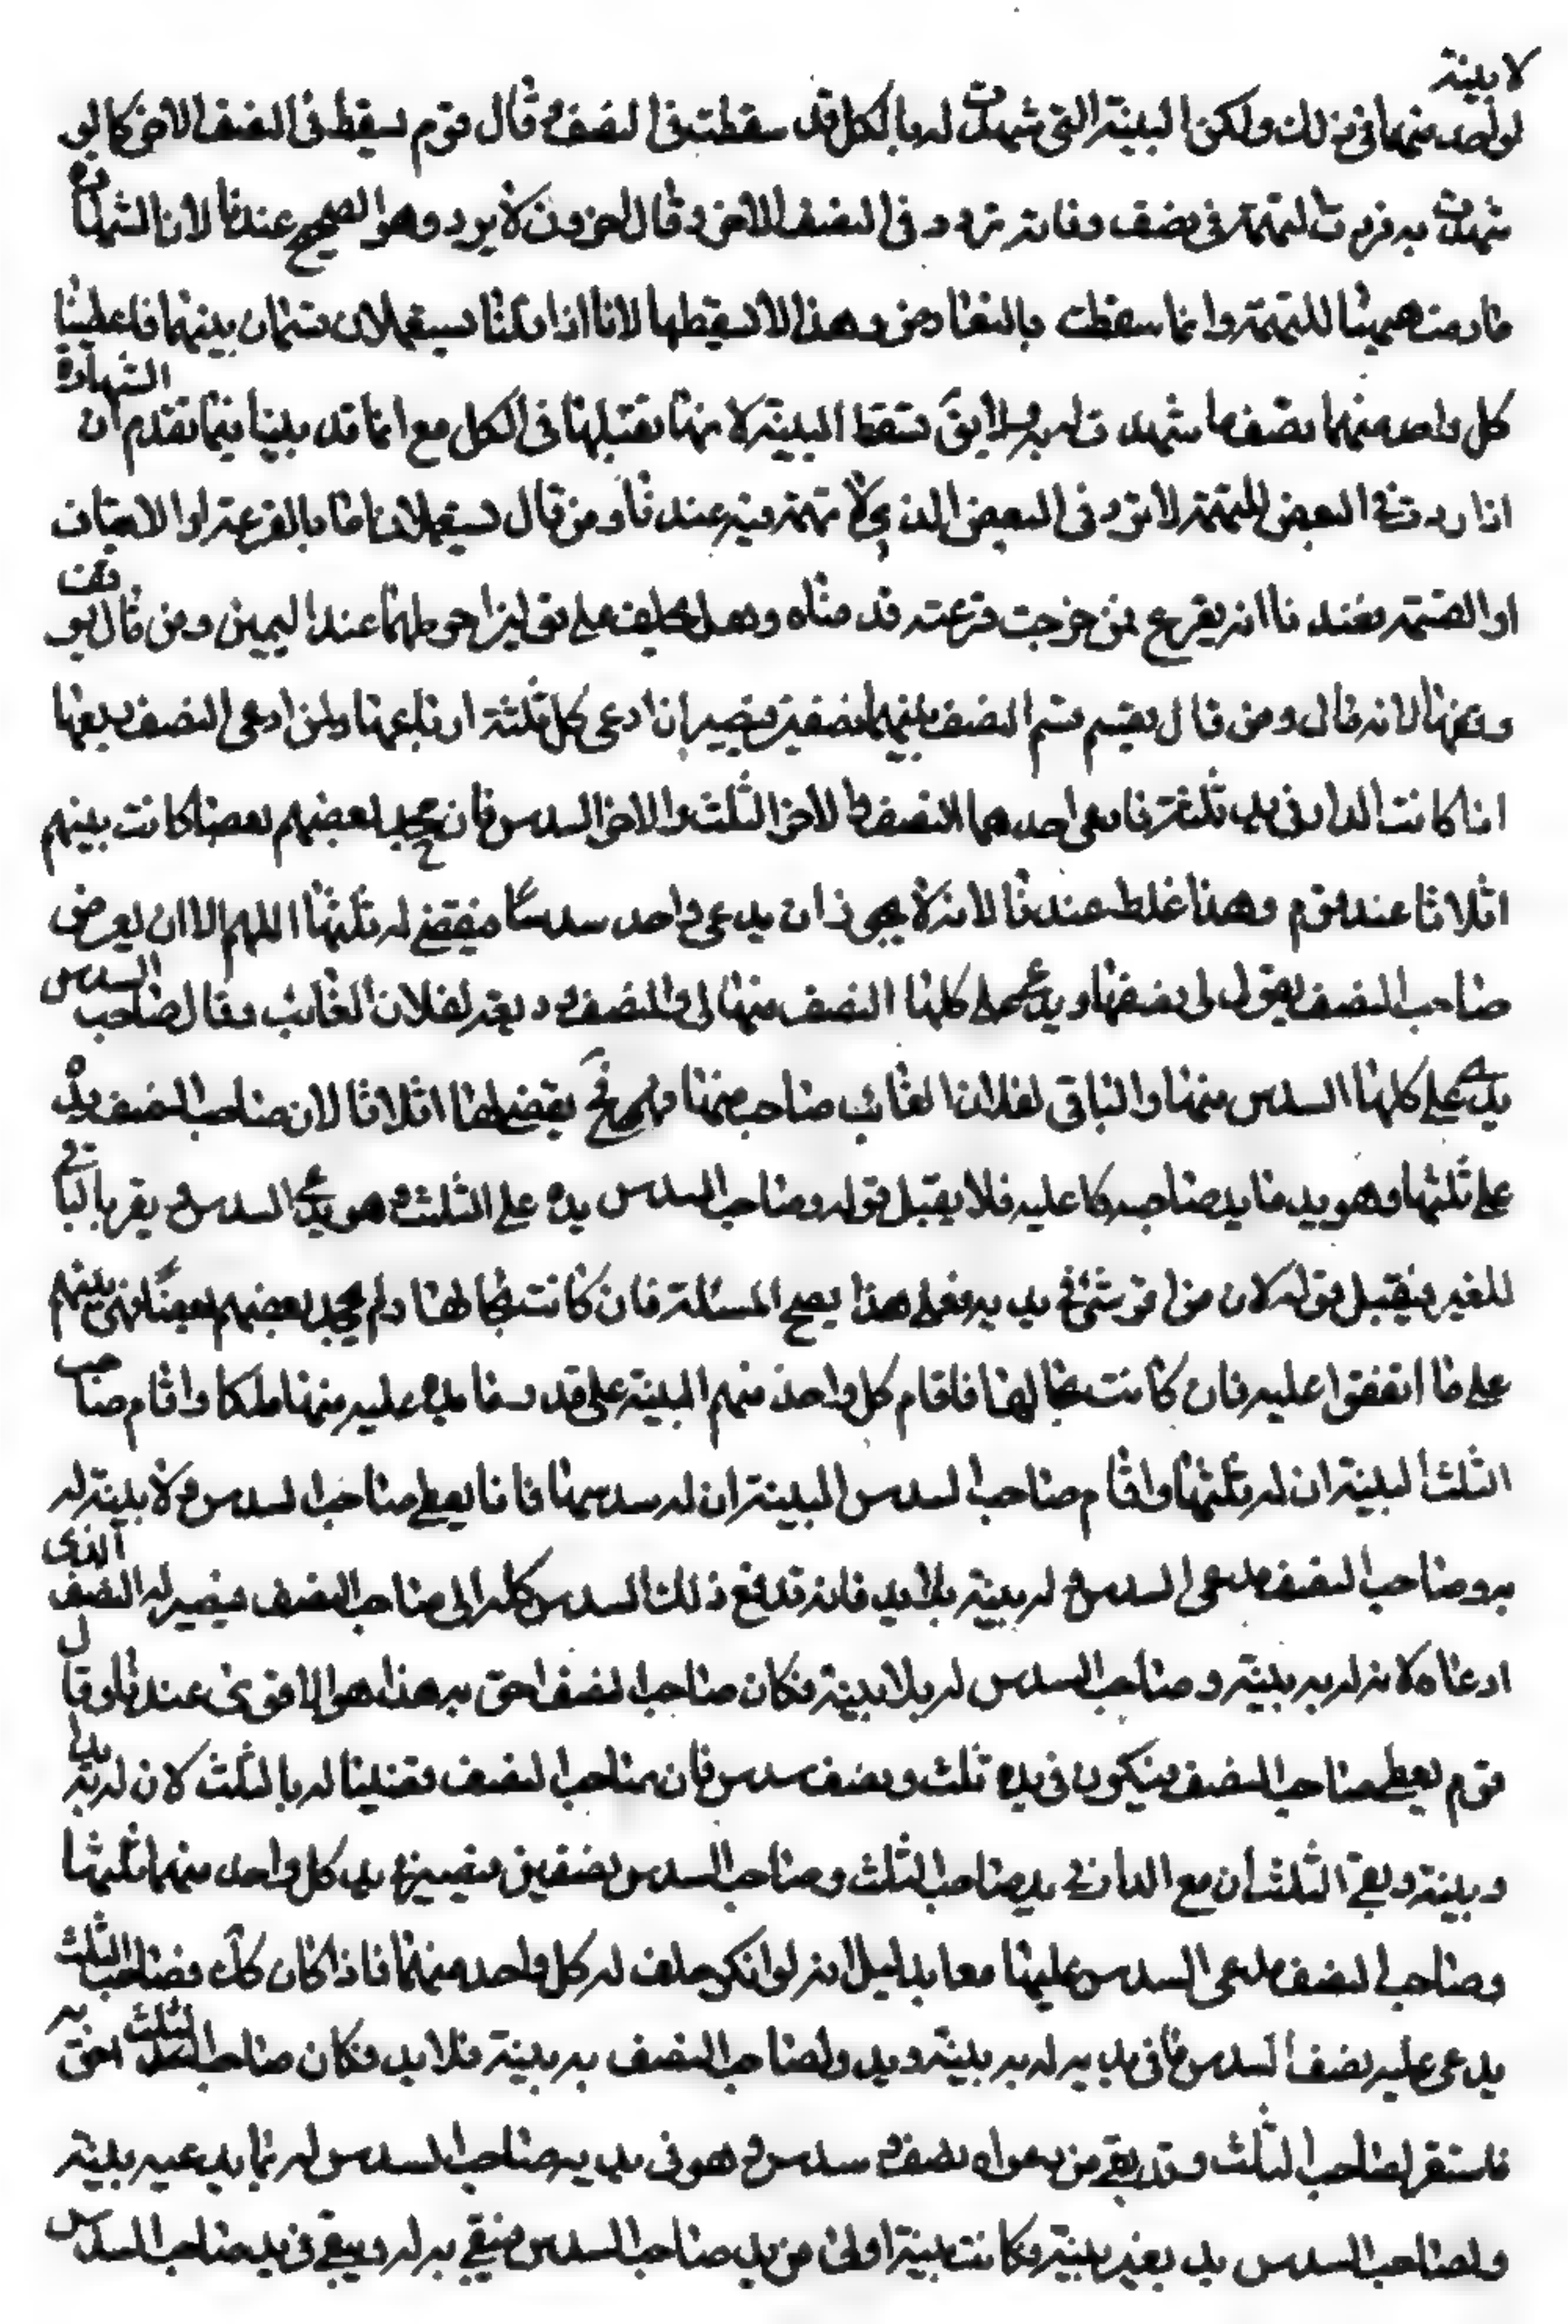 لا بينة
لواحد منهما في ذلك ولكن البينة التي شهدت له بالكل قد سقطت في النصف و قال قوم يسقط في النصف الاخر كما لو
شهدت به فردت للتهمة في نصف فانه ترد في النصف الاخر و قال اخرون لا يرد وهو الصحيح عندنا لان الشهادة
ما ردت هيهنا للتهمة وانما سقطت بالتعارض وهذا لا يسقطها لانا اذا قلنا يستعملان قسمان بينهما فاعطينا
كل واحد منهما نصف ما شهدت له به ولا يق تسقط البينة لانها تقبلها في الكل مع انا قد بينا فيما تقدم ان الشهادة
اذا ردت في البعض للتهمة لا ترد في البعض الذي لا تهمة فيه عندنا و من قال يستعملان اما بالقرعة او الايقاف
او القسمة فعندنا انه يقرع فمن خرجت قرعته قدمناه وهل يحلف على قولين احوطهما عندنا اليمين ومن قال يوقف
وقفها لانه مال ومن قال يقسم قسم النصف بينهما نصفين فيصير لمن ادعى كل ثلثة ارباعها ولمن ادعى النصف ربعها
اذا كانت الدار في يد ثلثة فادعى احدهما النصف و الاخر الثلث والاخر السدس فان جحد بعضهم بعضا كانت بينهم
اثلاثا عند قوم وهذا غلط عندنا لانه لا يجوز ان يدعي واحد سدسا فيقضى له بثلثها اللهم الا ان يعرض
صاحب النصف فيقول لي نصفها و يدي على كلها النصف منها لي و النصف وديعة لفلان الغائب وقال صاحب السدس
يدي على كلها السدس منها والباقي لفلان الغائب صاحب منها فهو ح يقضى لها اثلاثا لان صاحب النصف يده
على ثلثها وهو يد ما يد صاحبه كا عليه فلا يقبل قوله وصاحب السدس يده على الثلث وهو يدعي السدس و يقر بالباقي
للغير فيقبل قوله لان من اقر بشئ في يديه فعلى هذا يصح المسئلة فان كانت بحالها ولم يجحد بعضهم بعضا فهي بينهم
على ما اتفقوا عليه فان كانت بحالها فاقام كل واحد منهم البينة على قدر ما يدعيه منها ملكا واقام صاحب
الثلث البينة ان له ثلثها واقام صاحب السدس البينة ان له سدسها فانا يعطى صاحب السدس و لا بينة له
به وصاحب النصف يدعي السدس و له بينة بلا يد فانه تدفع ذلك السدس كله الى صاحب النصف فيصير له النصف الذي
ادعاه لانه له به بينة و صاحب السدس له يد بلا بينة فكان صاحب النصف احق به هذا هو الاقوى عندنا وقال
قوم يعطى صاحب النصف فيكون في يده ثلث ونصف سدس فان صاحب النصف قضينا له بالثلث لان له به يدا
وبينة وبقي الثلثان مع الدار في يد صاحب الثلث وصاحب السدس نصفين فيصير في يد كل واحد منهما ثلثها
وصاحب النصف يدعي السدس عليها معا بدليل انه لو انكر حلف له كل واحد منهما فاذا كان كك فصاحب الثلث
يدعي عليه نصف السدس مما في يديه له به بينة ويد ولصاحب النصف به بينة فلا يد فكان صاحب الثلث احق به
فاستقر لصاحب الثلث وقد بقي من دعواه نصف سدس و هو في يديه صاحب السدس له بما يدعيه بينة
ولصاحب السدس يد بغير بينة وكانت بينة اولى من يد صاحب السدس فيبقى به له ويبقى في يد صاحب السدس